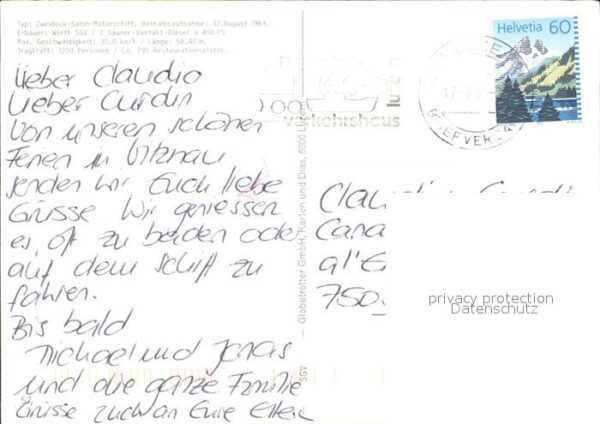 Typ: Zweideck-Salon-Motorschiff, Betriebsaufnahme: 17. August 1963.
Erbauer: Werft SGV / 2 Saurer-Viertakt-Diesel à 450 PS
Max. Geschwindigkeit: 30,0 km/h / Länge: 56,40 m,
Tragkraft: 1200 Personen / Ca. 195 Restaurationsplätze.
Helvetia 60
verkehrshaus
BRIEFVERSAND
Lieber Claudio
Lieber Curdin
Von unseren schönen
Ferien in Vitznau
senden wir Euch liebe
Grüsse Wir geniessen
es, oft zu baden oder
auf dem Schiff zu
fahren.
Bis bald
Michael und Jonas
und die ganze Familie
Grüsse auch an Eure Eltern
SGV — Globetrotter GmbH, Karten und Dias, 6000
Claudio
a l'E
750
privacy protection
Datenschutz